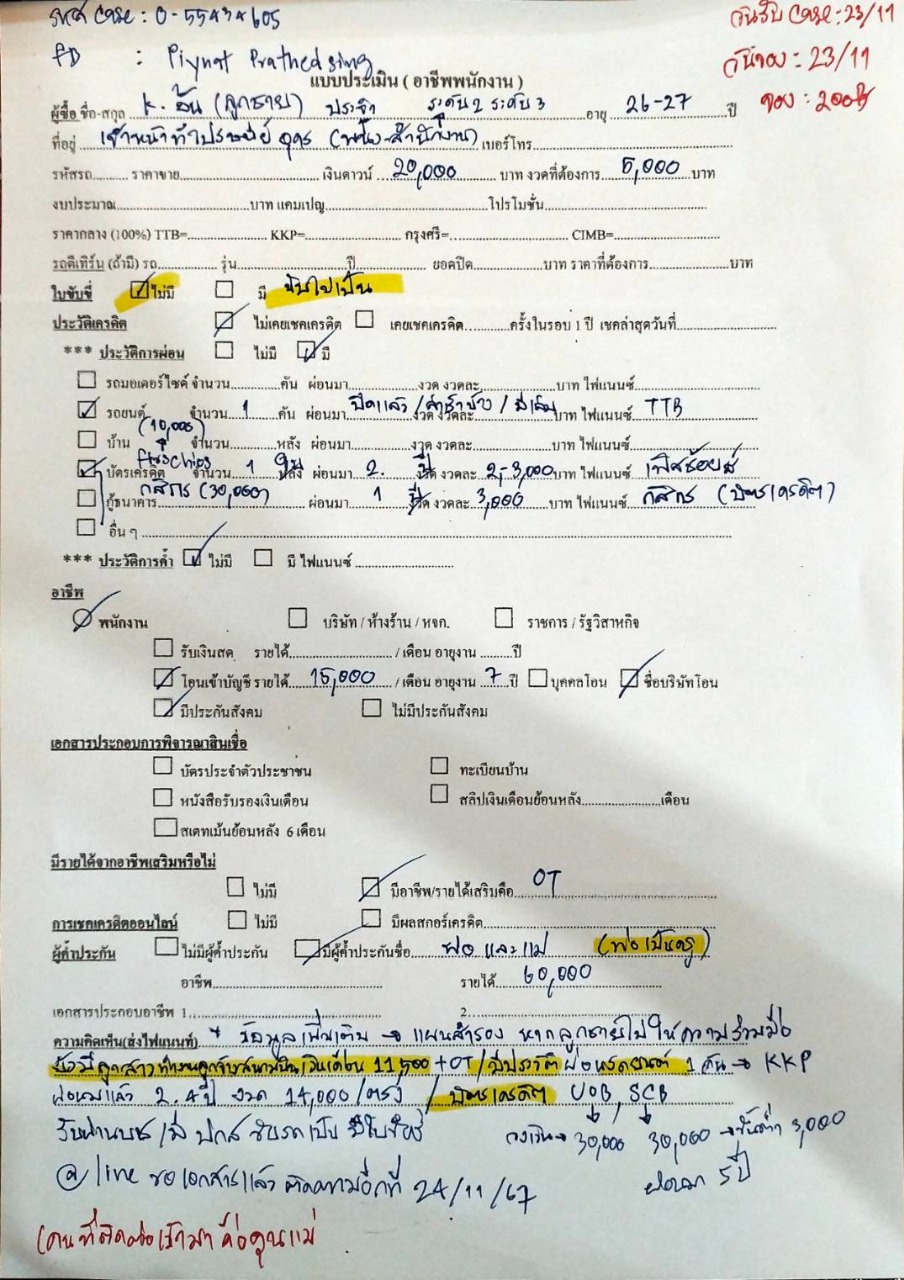 รหัส Case : 0-5543460S
วันรับ Case : 23/11
FB : Piynat Prathedsing
วันจอง : 23/11
จอง : 2005
แบบประเมิน ( อาชีพพนักงาน )
ผู้ซื้อ ชื่อ-สกุล K. อั๋น (ลูกชาย) ประจำ ระดับ 2 ระดับ 3 อายุ 26-27 ปี
ที่อยู่ เจ้าหน้าที่ไปรษณีย์ อุดร (พนักงาน) เบอร์โทร
รหัสรถ ราคาขาย เงินดาวน์ 20,000 บาท งวดที่ต้องการ 5,000 บาท
งบประมาณ บาท แคมเปญ โปรโมชั่น
ราคากลาง (100%) TTB= KKP= กรุงศรี= CIMB=
รถตีเทิร์น (ถ้ามี) รถ รุ่น ปี ยอดปิด บาท ราคาที่ต้องการ บาท
ใบขับขี่ ไม่มี มี ขับไม่เป็น
ประวัติเครดิต ไม่เคยเชคเครดิต เคยเชคเครดิต ครั้งในรอบ 1 ปี เชคล่าสุดวันที่
*** ประวัติการผ่อน ไม่มี มี
รถมอเตอร์ไซค์ จำนวน คัน ผ่อนมา งวด งวดละ บาท ไฟแนนซ์
รถยนต์ จำนวน 1 คัน ผ่อนมา ปิดแล้ว / ล่าช้าบ้าง / มีเล่ม งวด งวดละ บาท ไฟแนนซ์ TTB
(10,000)
บ้าน จำนวน หลัง ผ่อนมา งวด งวดละ บาท ไฟแนนซ์
บัตรเครดิต จำนวน 1 ใบ ผ่อนมา 2 ปี งวดละ 2,-3,000 บาท ไฟแนนซ์ เฟิสช้อยส์
กสิกร (30,000)
กู้ธนาคาร ผ่อนมา 1 ปี งวดละ 3,000 บาท ไฟแนนซ์ กสิกร (บัตรเครดิต)
อื่น ๆ
*** ประวัติการค้ำ ไม่มี มี ไฟแนนซ์
อาชีพ
พนักงาน บริษัท / ห้างร้าน / หจก. ราชการ / รัฐวิสาหกิจ
รับเงินสด รายได้ / เดือน อายุงาน ปี
โอนเข้าบัญชี รายได้ 15,000 / เดือน อายุงาน 7 ปี บุคคลโอน ชื่อบริษัทโอน
มีประกันสังคม ไม่มีประกันสังคม
เอกสารประกอบการพิจารณาสินเชื่อ
บัตรประจำตัวประชาชน ทะเบียนบ้าน
หนังสือรับรองเงินเดือน สลิปเงินเดือนย้อนหลัง เดือน
สเตทเม้นย้อนหลัง 6 เดือน
มีรายได้จากอาชีพเสริมหรือไม่
ไม่มี มีอาชีพ/รายได้เสริมคือ OT
การเชคเครดิตออนไลน์ ไม่มี มีผลสกอร์เครดิต
ผู้ค้ำประกัน ไม่มีผู้ค้ำประกัน มีผู้ค้ำประกันชื่อ พ่อ และ แม่ (พ่อเป็นครู)
อาชีพ รายได้ 60,000
เอกสารประกอบอาชีพ 1 2
ความคิดเห็น(ส่งไฟแนนท์) * ข้อมูลเพิ่มเติม → แผนสำรอง หากลูกชายไม่ให้ความร่วมมือ
ยังมีลูกสาว เงินเดือน 11,500 + OT / มีประวัติ ผ่อนรถยนต์ 1 คัน → KKP
ผ่อนมาแล้ว 2.4 ปี งวด 14,000 /ตรง / บัตรเครดิต UOB, SCB
ขับรถเป็น มีใบขับขี่ วงเงิน → 30,000 30,000 → ขั้นต่ำ 3,000
@line ขอเอกสารแล้ว ติดตามอีกที 24/11/67 ผ่อนมา 5 ปี
คนที่ติดต่อเข้ามา คือคุณแม่